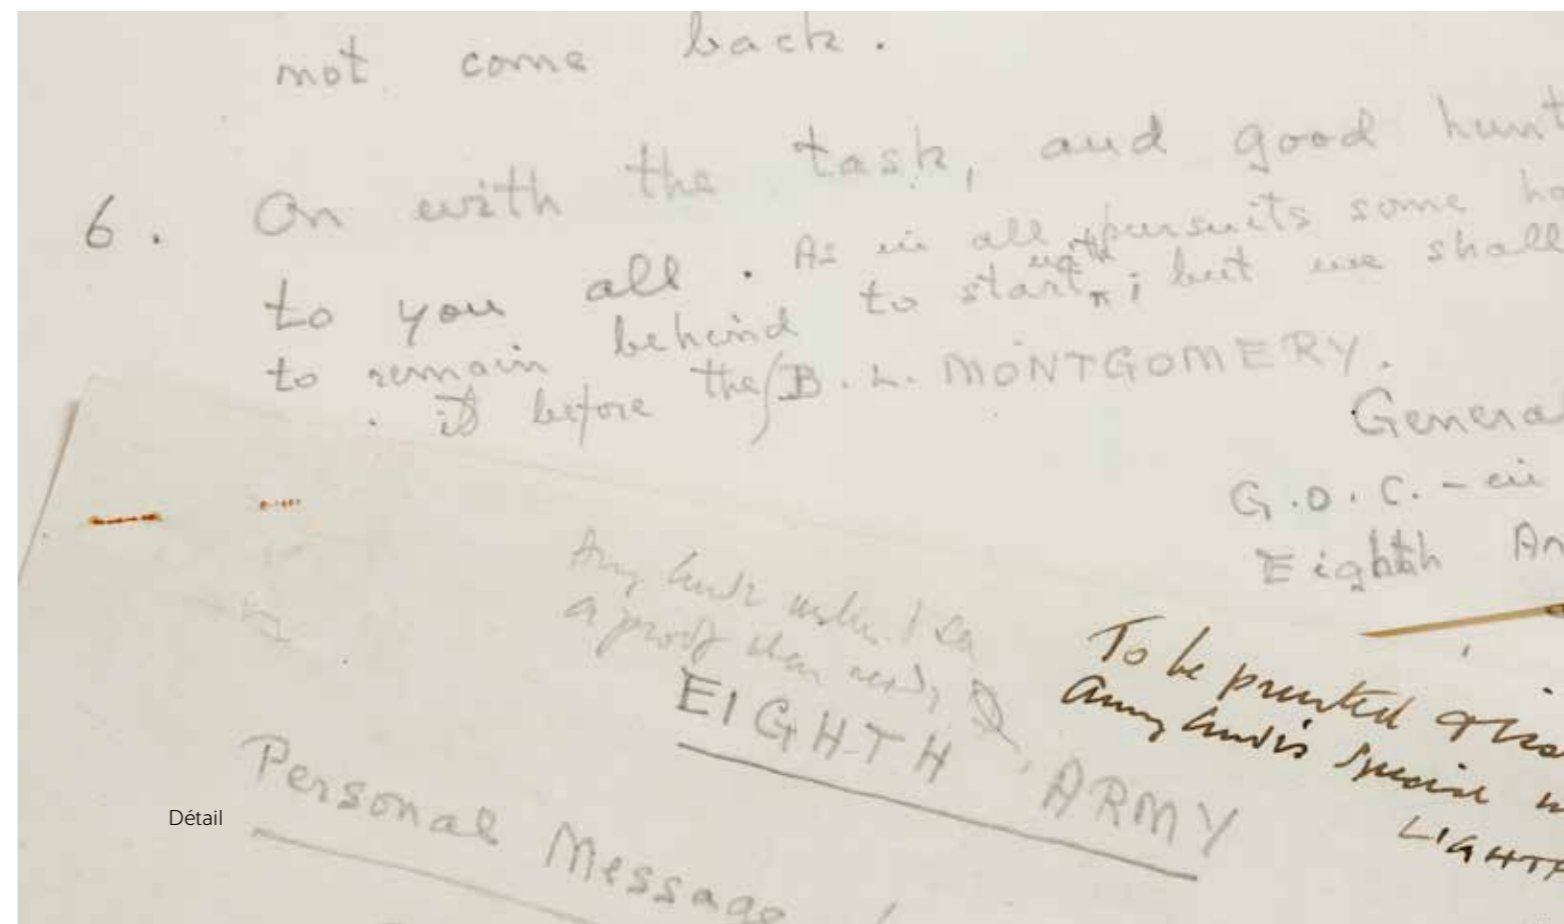 not come back.
6. On with the task, and good hunt
to you all. As in all pursuits some ha
to remain behind to start with; but we shall
it before the
B. L. MONTGOMERY.
General
G.O.C.-in
Eighth Ar
Army
a proof when ready
EIGHTH ARMY
To be printed
Army
LIGHTF
Personal Message
Détail